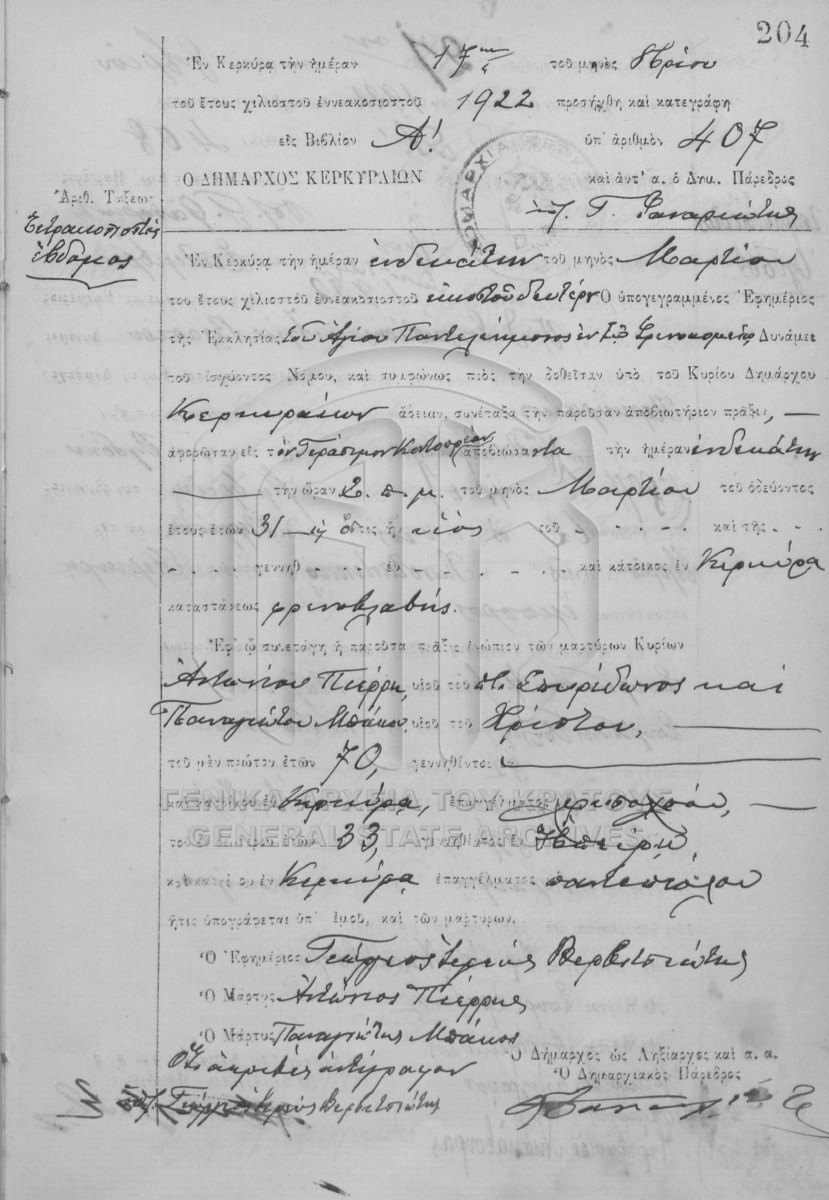 204
Ἐν Κερκύρᾳ τὴν ἡμέραν 17ην τοῦ μηνὸς 8βρίου
τοῦ ἔτους χιλιοστοῦ ἐννεακοσιοστοῦ 1922 προσήχθη καὶ κατεγράφη
εἰς Βιβλίον Α! ὑπ' ἀριθμὸν 407
Ο ΔΗΜΑΡΧΟΣ ΚΕΡΚΥΡΑΙΩΝ καὶ ἀντ' α. ὁ Δημ. Πάρεδρος
Γ. Φαναριώτης
Ἀριθ. Τάξεως
Τετρακοσιοστὸς
ἕβδομος
Ἐν Κερκύρᾳ τὴν ἡμέραν ἑνδεκάτην τοῦ μηνὸς Μαρτίου
τοῦ ἔτους χιλιοστοῦ ἐννεακοσιοστοῦ εἰκοστοῦ δευτέρου Ὁ ὑπογεγραμμένος Ἐφημέριος
τῆς Ἐκκλησίας τοῦ Ἁγίου Παντελεήμονος ἐν Φρενοκομείῳ Δυνάμει
τοῦ ἰσχύοντος Νόμου, καὶ συμφώνως πρὸς τὴν δοθεῖσαν ὑπὸ τοῦ Κυρίου Δημάρχου
Κερκυραίων ἄδειαν, συνέταξα τὴν παροῦσαν ἀποβιωτήριον πρᾶξιν, —
ἀφορῶσαν εἰς τὸν Γεράσιμον ἀποβιώσαντα τὴν ἡμέραν ἑνδεκάτην
— τὴν ὥραν 2. π. μ. τοῦ μηνὸς Μαρτίου τοῦ ὁδεύοντος
ἔτους ἐτῶν 31 — ὅστις ἦν υἱὸς τοῦ - - - - - καὶ τῆς - -
- - - - γεννηθ - - ἐν - - - - - καὶ κάτοικος ἐν Κερκύρᾳ
καταστάσεως φρενοβλαβής.
Ἐφ' ᾧ συνετάγη ἡ παροῦσα πρᾶξις ἐνώπιον τῶν μαρτύρων Κυρίων
Ἀντωνίου Πιέρρη, υἱοῦ τοῦ ποτὲ Σπυρίδωνος καὶ
Παναγιώτου Μπάκου, υἱοῦ τοῦ Χρίστου, —
τοῦ μὲν πρώτου ἐτῶν 70, γεννηθέντος ἐν —
καὶ κατοίκου ἐν Κερκύρᾳ, ἐπαγγέλματος χρυσοχόου, —
τοῦ δὲ δευτέρου ἐτῶν 33, γεννηθέντος ἐν Ἠπείρῳ
καὶ κατοίκου ἐν Κερκύρᾳ ἐπαγγέλματος παντοπώλου
ἥτις ὑπογράφεται ὑπ' ἐμοῦ, καὶ τῶν μαρτύρων.
Ὁ Ἐφημέριος Γεώργιος Ἱερεὺς Βερβιτσιώτης
Ὁ Μάρτυς Ἀντώνιος Πιέρρης
Ὁ Μάρτυς Παναγιώτης Μπάκος
Ὅτι ἀκριβὲς ἀντίγραφον
Γεώργιος Ἱερεὺς Βερβιτσιώτης
Ὁ Δήμαρχος ὡς Ληξίαρχος καὶ α. α.
Ὁ Δημαρχιακὸς Πάρεδρος
ΓΕΝΙΚΑ ΑΡΧΕΙΑ ΤΟΥ ΚΡΑΤΟΥΣ
GENERAL STATE ARCHIVES